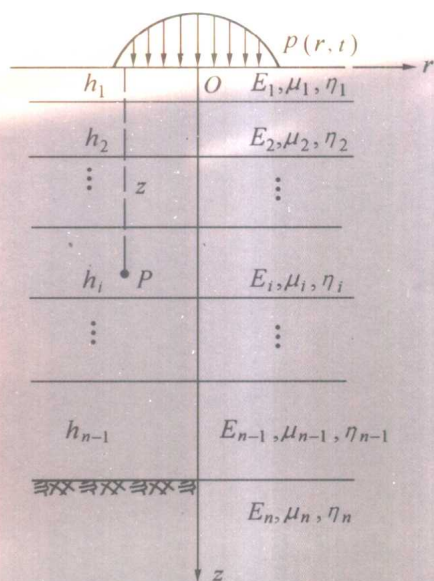 p(r,t)
r
h₁ O E₁,μ₁,η₁
h₂ E₂,μ₂,η₂
⋮ z ⋮
hᵢ P Eᵢ,μᵢ,ηᵢ
⋮ ⋮
hₙ₋₁ Eₙ₋₁,μₙ₋₁,ηₙ₋₁
Eₙ,μₙ,ηₙ
z